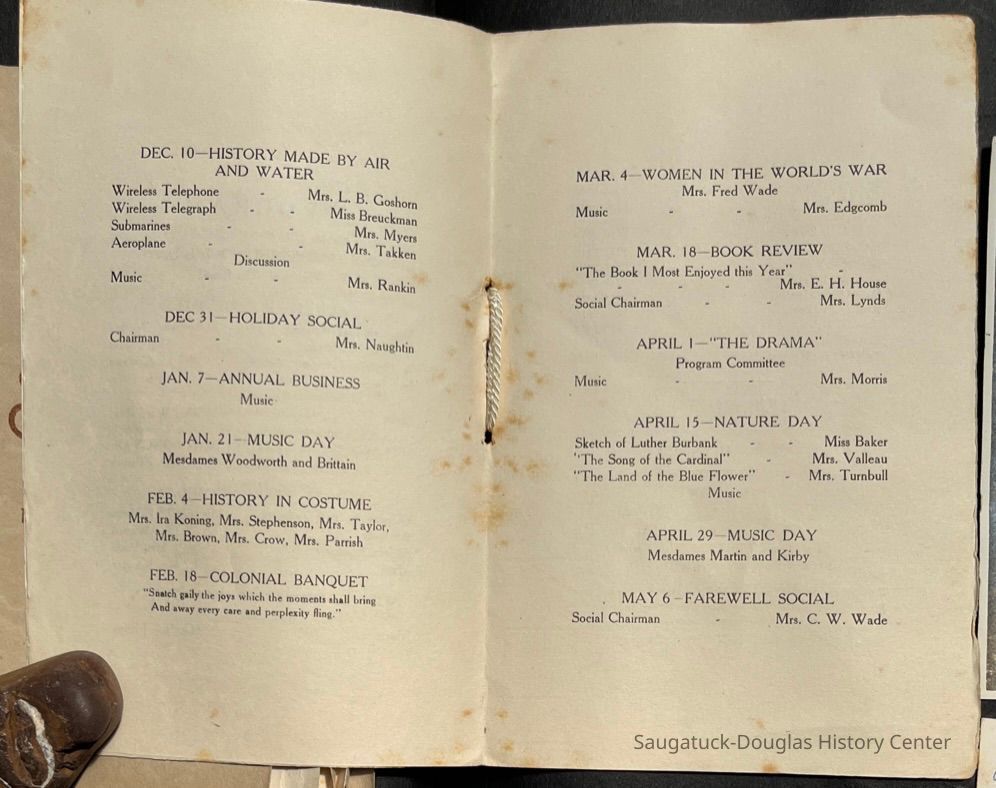 DEC. 10—HISTORY MADE BY AIR
AND WATER
Wireless Telephone - Mrs. L. B. Goshorn
Wireless Telegraph - - Miss Breuckman
Submarines - - Mrs. Myers
Aeroplane - - Mrs. Takken
Discussion
Music - - Mrs. Rankin
DEC 31—HOLIDAY SOCIAL
Chairman - - Mrs. Naughtin
JAN. 7—ANNUAL BUSINESS
Music
JAN. 21—MUSIC DAY
Mesdames Woodworth and Brittain
FEB. 4—HISTORY IN COSTUME
Mrs. Ira Koning, Mrs. Stephenson, Mrs. Taylor,
Mrs. Brown, Mrs. Crow, Mrs. Parrish
FEB. 18—COLONIAL BANQUET
"Snatch gaily the joys which the moments shall bring
And away every care and perplexity fling."
MAR. 4—WOMEN IN THE WORLD'S WAR
Mrs. Fred Wade
Music - - Mrs. Edgcomb
MAR. 18—BOOK REVIEW
"The Book I Most Enjoyed this Year" -
- - - Mrs. E. H. House
Social Chairman - - Mrs. Lynds
APRIL 1—"THE DRAMA"
Program Committee
Music - - Mrs. Morris
APRIL 15—NATURE DAY
Sketch of Luther Burbank - - Miss Baker
"The Song of the Cardinal" - Mrs. Valleau
"The Land of the Blue Flower" - Mrs. Turnbull
Music
APRIL 29—MUSIC DAY
Mesdames Martin and Kirby
MAY 6—FAREWELL SOCIAL
Social Chairman - Mrs. C. W. Wade
Saugatuck-Douglas History Center